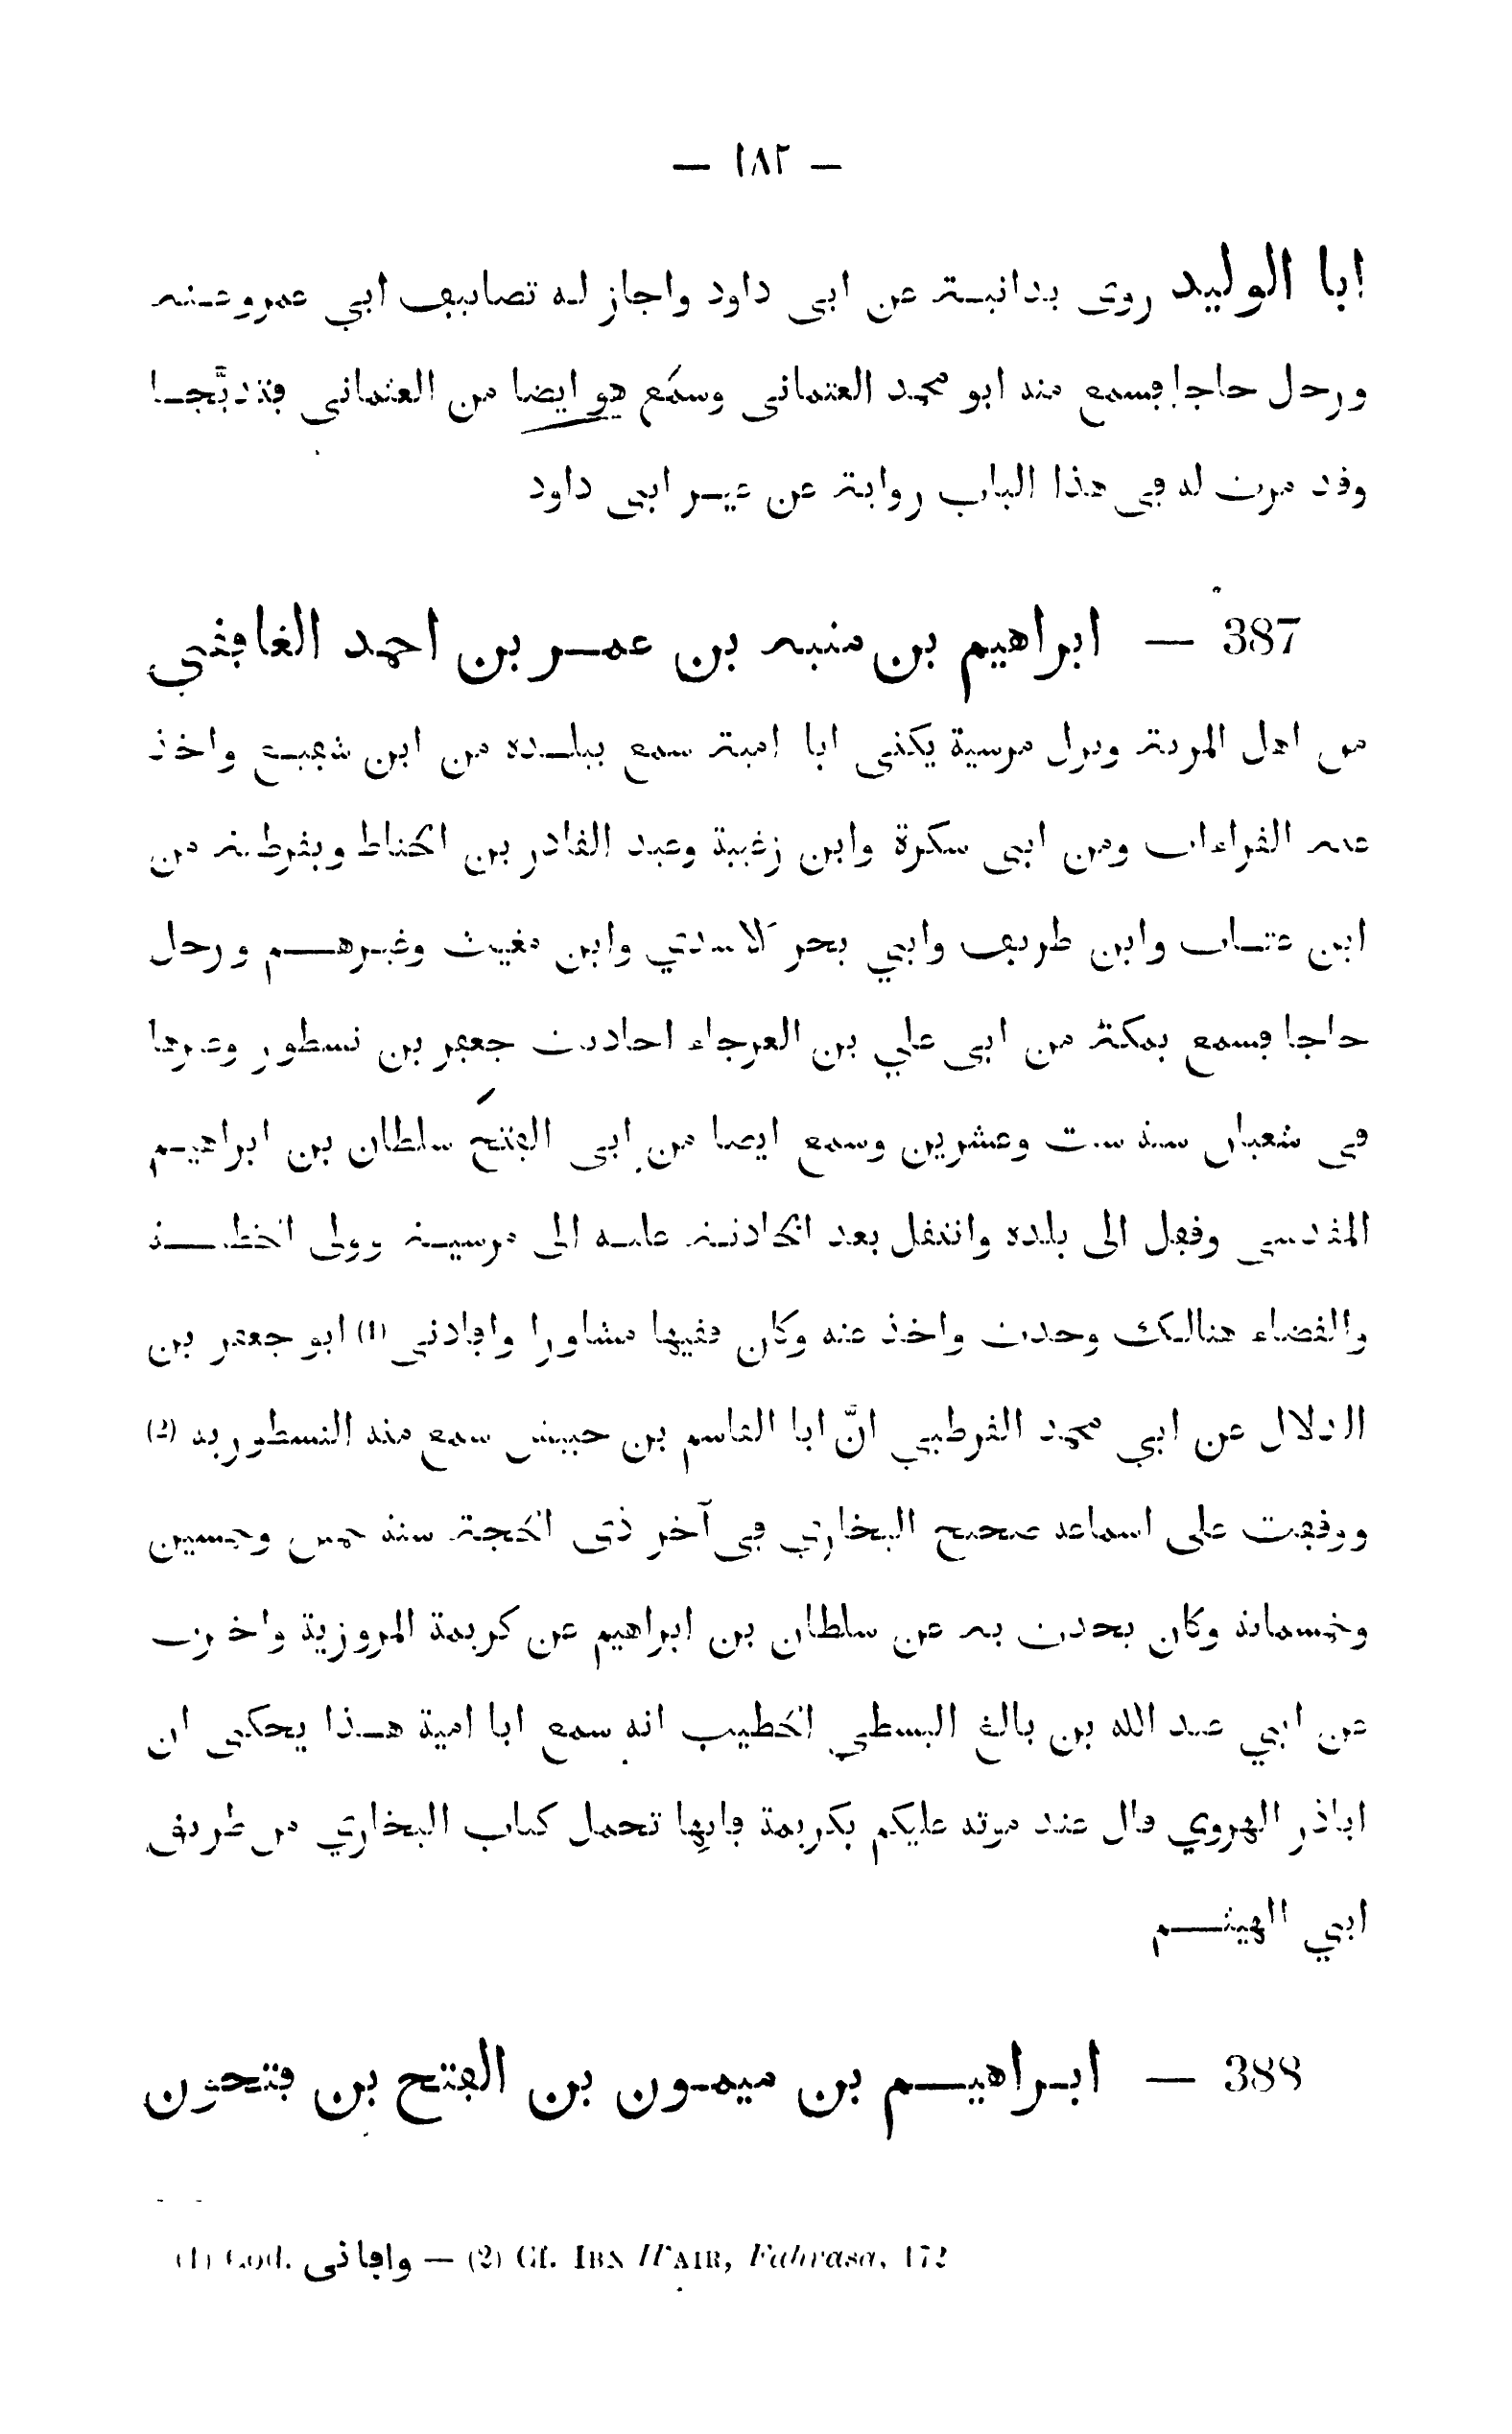 — ١٨٢ —
ابا الوليد روى بدانية عن ابى داود واجاز له تصانيف ابي عمرو عنه
ورحل حاجا فسمع منه ابو محمد العثمانى وسمع هو ايضا من العثمانى فتدبَّجا
وقد مرت له فى هذا الباب رواية عن غير ابى داود
387 — ابراهيم بن منبه بن عمر بن احمد الغافقي
من اهل المرية ونزل مرسية يكنى ابا امية سمع ببلده من ابن شفيع واخذ
عنه القراءات ومن ابى سكرة وابن زغيبة وعبد القادر بن الحناط وبقرطبة من
ابن عتاب وابن طريف وابي بحر الاسدي وابن مغيث وغيرهم ورحل
حاجا فسمع بمكة من ابى علي بن العرجاء احاديث جعفر بن نسطور وغيرها
فى شعبان سنة ست وعشرين وسمع ايضا من ابى الفتح سلطان بن ابراهيم
المقدسى وقفل الى بلده وانتقل بعد الحادثة عليه الى مرسية وولى الخطبة
والقضاء هنالك وحدث واخذ عنه وكان فقيها مشاورا وافادنى (1) ابو جعفر بن
الدلال عن ابي محمد القرطبي انّ ابا القاسم بن حبيش سمع منه النسطورية (2)
ووقفت على اسماعه صحيح البخاري فى آخر ذى الحجة سنة خمس وخمسين
وخمسمائة وكان يحدث به عن سلطان بن ابراهيم عن كريمة المروزية واخبرت
عن ابي عبد الله بن بالغ البسطي الخطيب انه سمع ابا امية هذا يحكى ان
اباذر الهروي قال عند موته عليكم بكريمة فانها تحمل كتاب البخاري من طريق
ابي الهيثم
388 — ابراهيم بن ميمون بن الفتح بن فتحون
(1) Cod. وافانى — (2) Cf. IBN ḪAIR, Fahrasa, 172